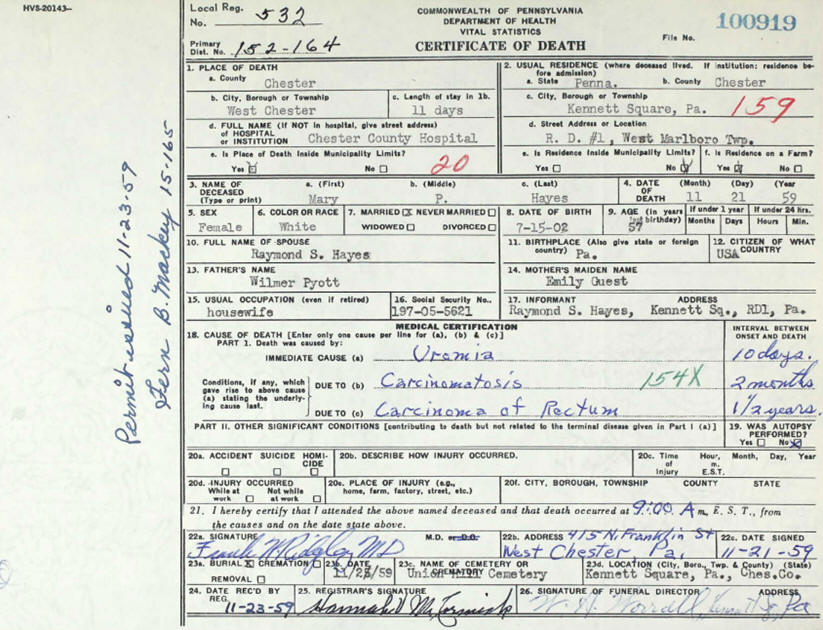 HVS-20143—
Local Reg. No. 532
COMMONWEALTH OF PENNSYLVANIA
DEPARTMENT OF HEALTH
VITAL STATISTICS
CERTIFICATE OF DEATH
File No. 100919
Primary Dist. No. 152-164
1. PLACE OF DEATH
a. County
Chester
2. USUAL RESIDENCE (where deceased lived. If institution: residence before admission)
a. State Penna. b. County Chester
b. City, Borough or Township
West Chester
c. Length of stay in 1b.
11 days
c. City, Borough or Township
Kennett Square, Pa. 159
d. FULL NAME (If NOT in hospital, give street address) of HOSPITAL or INSTITUTION Chester County Hospital
d. Street Address or Location
R. D. #1, West Marlboro Twp.
e. Is Place of Death Inside Municipality Limits?
Yes No 20
e. Is Residence Inside Municipality Limits?
Yes No
f. Is Residence on a Farm?
Yes No
3. NAME OF DECEASED (Type or print)
a. (First) b. (Middle) c. (Last)
Mary P. Hayes
4. DATE OF DEATH (Month) (Day) (Year)
11 21 59
5. SEX
Female
6. COLOR OR RACE
White
7. MARRIED NEVER MARRIED
WIDOWED DIVORCED
8. DATE OF BIRTH
7-15-02
9. AGE (in years last birthday)
57
If under 1 year Months Days
If under 24 hrs. Hours Min.
10. FULL NAME OF SPOUSE
Raymond S. Hayes
11. BIRTHPLACE (Also give state or foreign country)
Pa.
12. CITIZEN OF WHAT COUNTRY
USA
13. FATHER'S NAME
Wilmer Pyott
14. MOTHER'S MAIDEN NAME
Emily Guest
15. USUAL OCCUPATION (even if retired)
housewife
16. Social Security No.
197-05-5621
17. INFORMANT ADDRESS
Raymond S. Hayes, Kennett Sq., RD1, Pa.
MEDICAL CERTIFICATION
18. CAUSE OF DEATH [Enter only one cause per line for (a), (b) & (c)]
PART I. Death was caused by:
INTERVAL BETWEEN ONSET AND DEATH
IMMEDIATE CAUSE (a) Uremia 10 days.
Conditions, if any, which gave rise to above cause (a) stating the underlying cause last.
DUE TO (b) Carcinomatosis 154X 2 months
DUE TO (c) Carcinoma of Rectum 1 1/2 years.
PART II. OTHER SIGNIFICANT CONDITIONS [contributing to death but not related to the terminal disease given in Part I (a)]
19. WAS AUTOPSY PERFORMED?
Yes No
20a. ACCIDENT SUICIDE HOMICIDE
20b. DESCRIBE HOW INJURY OCCURRED.
20c. Time of Injury Hour, m. E.S.T. Month, Day, Year
20d. INJURY OCCURRED
While at work Not while at work
20e. PLACE OF INJURY (e.g., home, farm, factory, street, etc.)
20f. CITY, BOROUGH, TOWNSHIP COUNTY STATE
21. I hereby certify that I attended the above named deceased and that death occurred at 9:00 A m., E. S. T., from
the causes and on the date state above.
22a. SIGNATURE M.D. or D.O.
Frank M Ridgley MD
22b. ADDRESS 415 N. Franklin St
West Chester, Pa.
22c. DATE SIGNED
11-21-59
23a. BURIAL CREMATION
REMOVAL
23b. DATE
23c. NAME OF CEMETERY OR CREMATORY
Union Hill Cemetery
23d. LOCATION (City, Boro., Twp. & County) (State)
Kennett Square, Pa., Ches.Co.
24. DATE REC'D BY REG.
11-23-59
25. REGISTRAR'S SIGNATURE
Hannah M. McCormick
26. SIGNATURE OF FUNERAL DIRECTOR ADDRESS
Pa
Permit issued 11-23-59
Fern B. Mackey 15-165